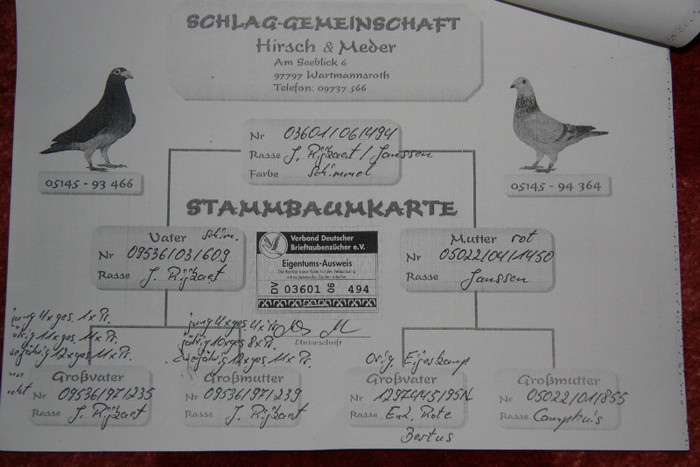 SCHLAG-GEMEINSCHAFT
Hirsch & Meder
Am Seeblick 6
97797 Wartmannsroth
Telefon: 09737 566
Nr 03601/06/494
Rasse J. Rijzaert / Janssen
Farbe Schimmel
05145 - 93 466
05145 - 94 364
STAMMBAUMKARTE
Vater Schim.
Nr 09536/03/609
Rasse J. Rijzaert
Verband Deutscher
Brieftaubenzüchter e.V.
Eigentums-Ausweis
DV 03601 06 494
Unterschrift
Mutter rot
Nr 05022/04/1450
Rasse Janssen
jung 4x ges. 1x Pr.
11x ges. 11x Pr.
12x ges. 11x Pr.
jung 4x ges.
jährig 10x ges 8x Pr.
12x ges. 11x Pr.
Großvater
Nr 09536/97/235
Rasse J. Rijzaert
Großmutter
Nr 09536/97/239
Rasse J. Rijzaert
orig. Eijerkamp
Großvater
Nr 1297445/95N
Rasse Enk. Rote
Bertus
Großmutter
Nr 05022/01/855
Rasse Camphuis